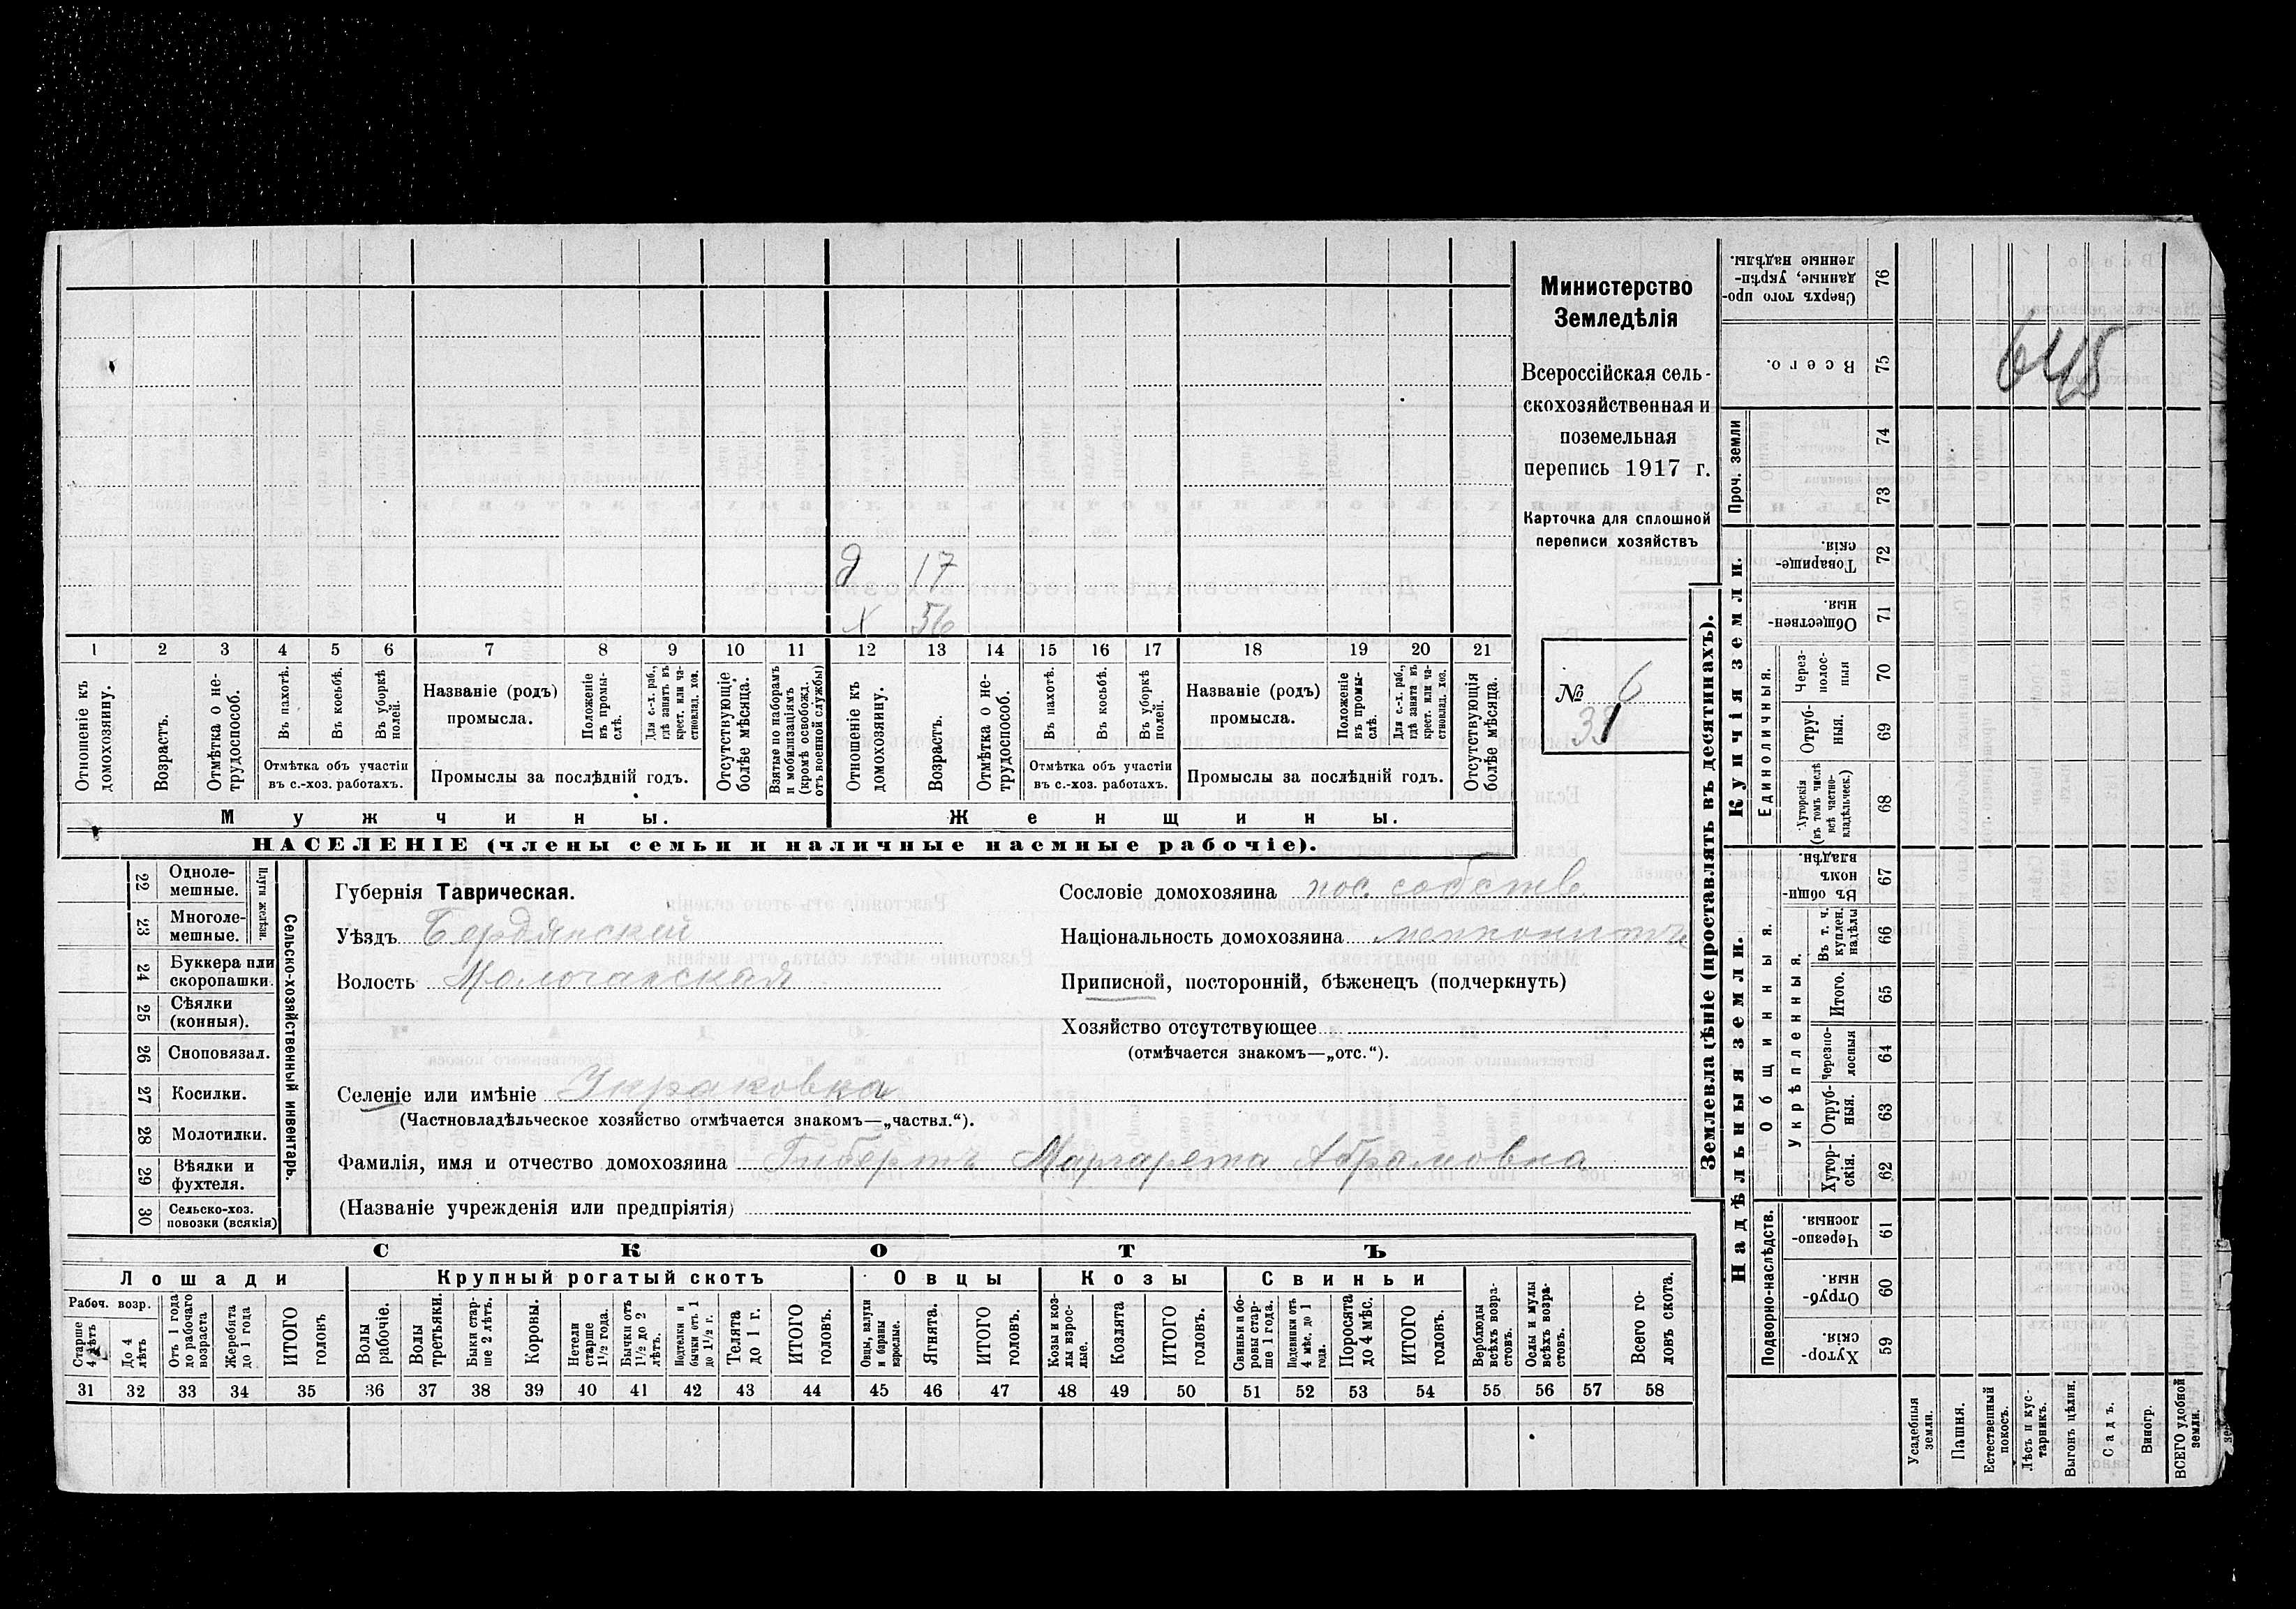 д 17
х 56
1 2 3 4 5 6 7 8 9 10 11 12 13 14 15 16 17 18 19 20 21
Отношеніе къ домохозяину.
Возрастъ.
Отмѣтка о нетрудоспособ.
Въ пахотѣ.
Въ косьбѣ.
Въ уборкѣ полей.
Отмѣтка объ участіи
въ с.-хоз. работахъ.
Названіе (родъ)
промысла.
Положеніе въ промыслѣ.
Для с.-х. раб., гдѣ занятъ въ крест. или частновлад. хоз.
Промыслы за послѣдній годъ.
Отсутствующіе болѣе мѣсяца.
Взятые по наборамъ и мобилизаціямъ (кромѣ освобожд. отъ военной службы)
Отношеніе къ домохозяину.
Возрастъ.
Отмѣтка о нетрудоспособ.
Въ пахотѣ.
Въ косьбѣ.
Въ уборкѣ полей.
Отмѣтка объ участіи
въ с.-хоз. работахъ.
Названіе (родъ)
промысла.
Положеніе въ промыслѣ.
Для с.-х. раб., гдѣ занята въ крест. или частновлад. хоз.
Промыслы за послѣдній годъ.
Отсутствующія болѣе мѣсяца.
Мужчины.
Женщины.
НАСЕЛЕНІЕ (члены семьи и наличные наемные рабочіе).
Министерство
Земледѣлія
Всероссійская сель-
скохозяйственная и
поземельная
перепись 1917 г.
Карточка для сплошной
переписи хозяйствъ
№ 6
22 Однолемешные.
23 Многолемешные.
Плуги желѣзн.
24 Буккера или скоропашки.
25 Сѣялки (конныя).
26 Сноповязал.
27 Косилки.
28 Молотилки.
29 Вѣялки и фухтеля.
30 Сельско-хоз. повозки (всякія)
Сельско-хозяйственный инвентарь.
Губернія Таврическая.
Уѣздъ Бердянскій
Волость Молочанская
Сословіе домохозяина пос. собств.
Національность домохозяина меннонитъ
Приписной, посторонній, бѣженецъ (подчеркнуть)
Хозяйство отсутствующее
(отмѣчается знакомъ—„отс.“).
Селеніе или имѣніе
(Частновладѣльческое хозяйство отмѣчается знакомъ—„частвл.“).
Фамилія, имя и отчество домохозяина Гибертъ Маргарета Абрамовна
(Названіе учрежденія или предпріятія)
СКОТЪ
Лошади
Крупный рогатый скотъ
Овцы
Козы
Свиньи
Рабоч. возр.
Старше 4 лѣтъ
До 4 лѣтъ
Отъ 1 года до рабочаго возраста
Жеребята до 1 года
ИТОГО головъ
Волы рабочіе.
Волы третьяки.
Быки старше 2 лѣтъ.
Коровы.
Нетели старше 1½ года.
Бычки отъ 1½ до 2 лѣтъ.
Подтелки и бычки отъ 1 до 1½ г.
Телята до 1 г.
ИТОГО головъ.
Овцы, валухи и бараны взрослые.
Ягнята.
ИТОГО головъ.
Козы и козлы взрослые.
Козлята
ИТОГО головъ.
Свиньи и боровы старше 1 года.
Подсвинки отъ 4 мѣс. до 1 года.
Поросята до 4 мѣс.
ИТОГО головъ.
Верблюды всѣхъ возрастовъ.
Ослы и мулы всѣхъ возрастовъ.
Всего головъ скота.
31 32 33 34 35 36 37 38 39 40 41 42 43 44 45 46 47 48 49 50 51 52 53 54 55 56 57 58
Землевладѣніе (проставлять въ десятинахъ).
Надѣльныя земли.
Купчія земли.
Проч. земли
Подворно-наслѣдств.
Общинныя.
Укрѣпленныя.
Единоличныя.
Сверхъ того проданные, укрѣпленные надѣлы. 76
Всего. 75
74
73
Товарищескія. 72
Общественныя. 71
Черезполосныя 70
Отрубныя. 69
Хуторскія (въ томъ числѣ всѣ частновладѣльческ.) 68
Въ общиномъ владѣн. 67
Въ т. ч. куплен. надѣлы 66
Итого. 65
Черезполосныя 64
Отрубныя. 63
Хуторскія. 62
Черезполосныя. 61
Отрубныя. 60
Хуторскія. 59
Усадебныя земли.
Пашня.
Естественный покосъ.
Лѣсъ и кустарникъ.
Выгонъ цѣлин.
Садъ.
Виногр.
ВСЕГО удобной земли.
645